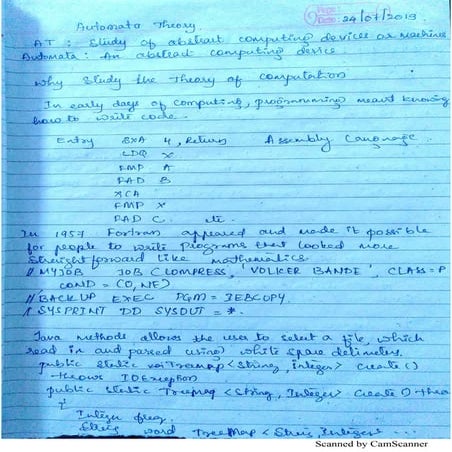 Page:
Date: 24/07/2019
Automata Theory
AT : Study of abstract computing devices or machines
Automata : An abstract computing device
Why Study the Theory of computation
In early days of computing, programming meant knowing
how to write code.
Entry SXA 4, Return Assembly Language
LDQ X
FMP A
FAD B
XCA
FMP X
FAD C etc.
In 1957 Fortran appeared and made it possible
for people to write Programs that looked more
Streightforward like mathematics
// MYJOB JOB (COMPRESS, 'VOLKER BANDE', CLASS=P
COND = (0, NE)
// BACKUP EXEC PGM = IEBCOPY
SYSPRINT DD SYSOUT = *.
Java methode allows the user to select a file, which
read in and parsed using white space delimeters.
public static TreeMap <String, Integer> create ()
throws IOException
public static Treemap <String, Integer> create ()
{
Integer freq,
String word TreeMap <String, Integer>
Scanned by CamScanner